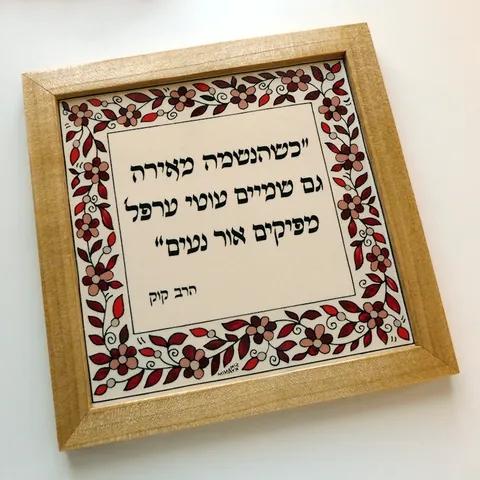 "כשהנשמה מאירה
גם שמיים עוטי ערפל
מפיקים אור נעים"
הרב קוק